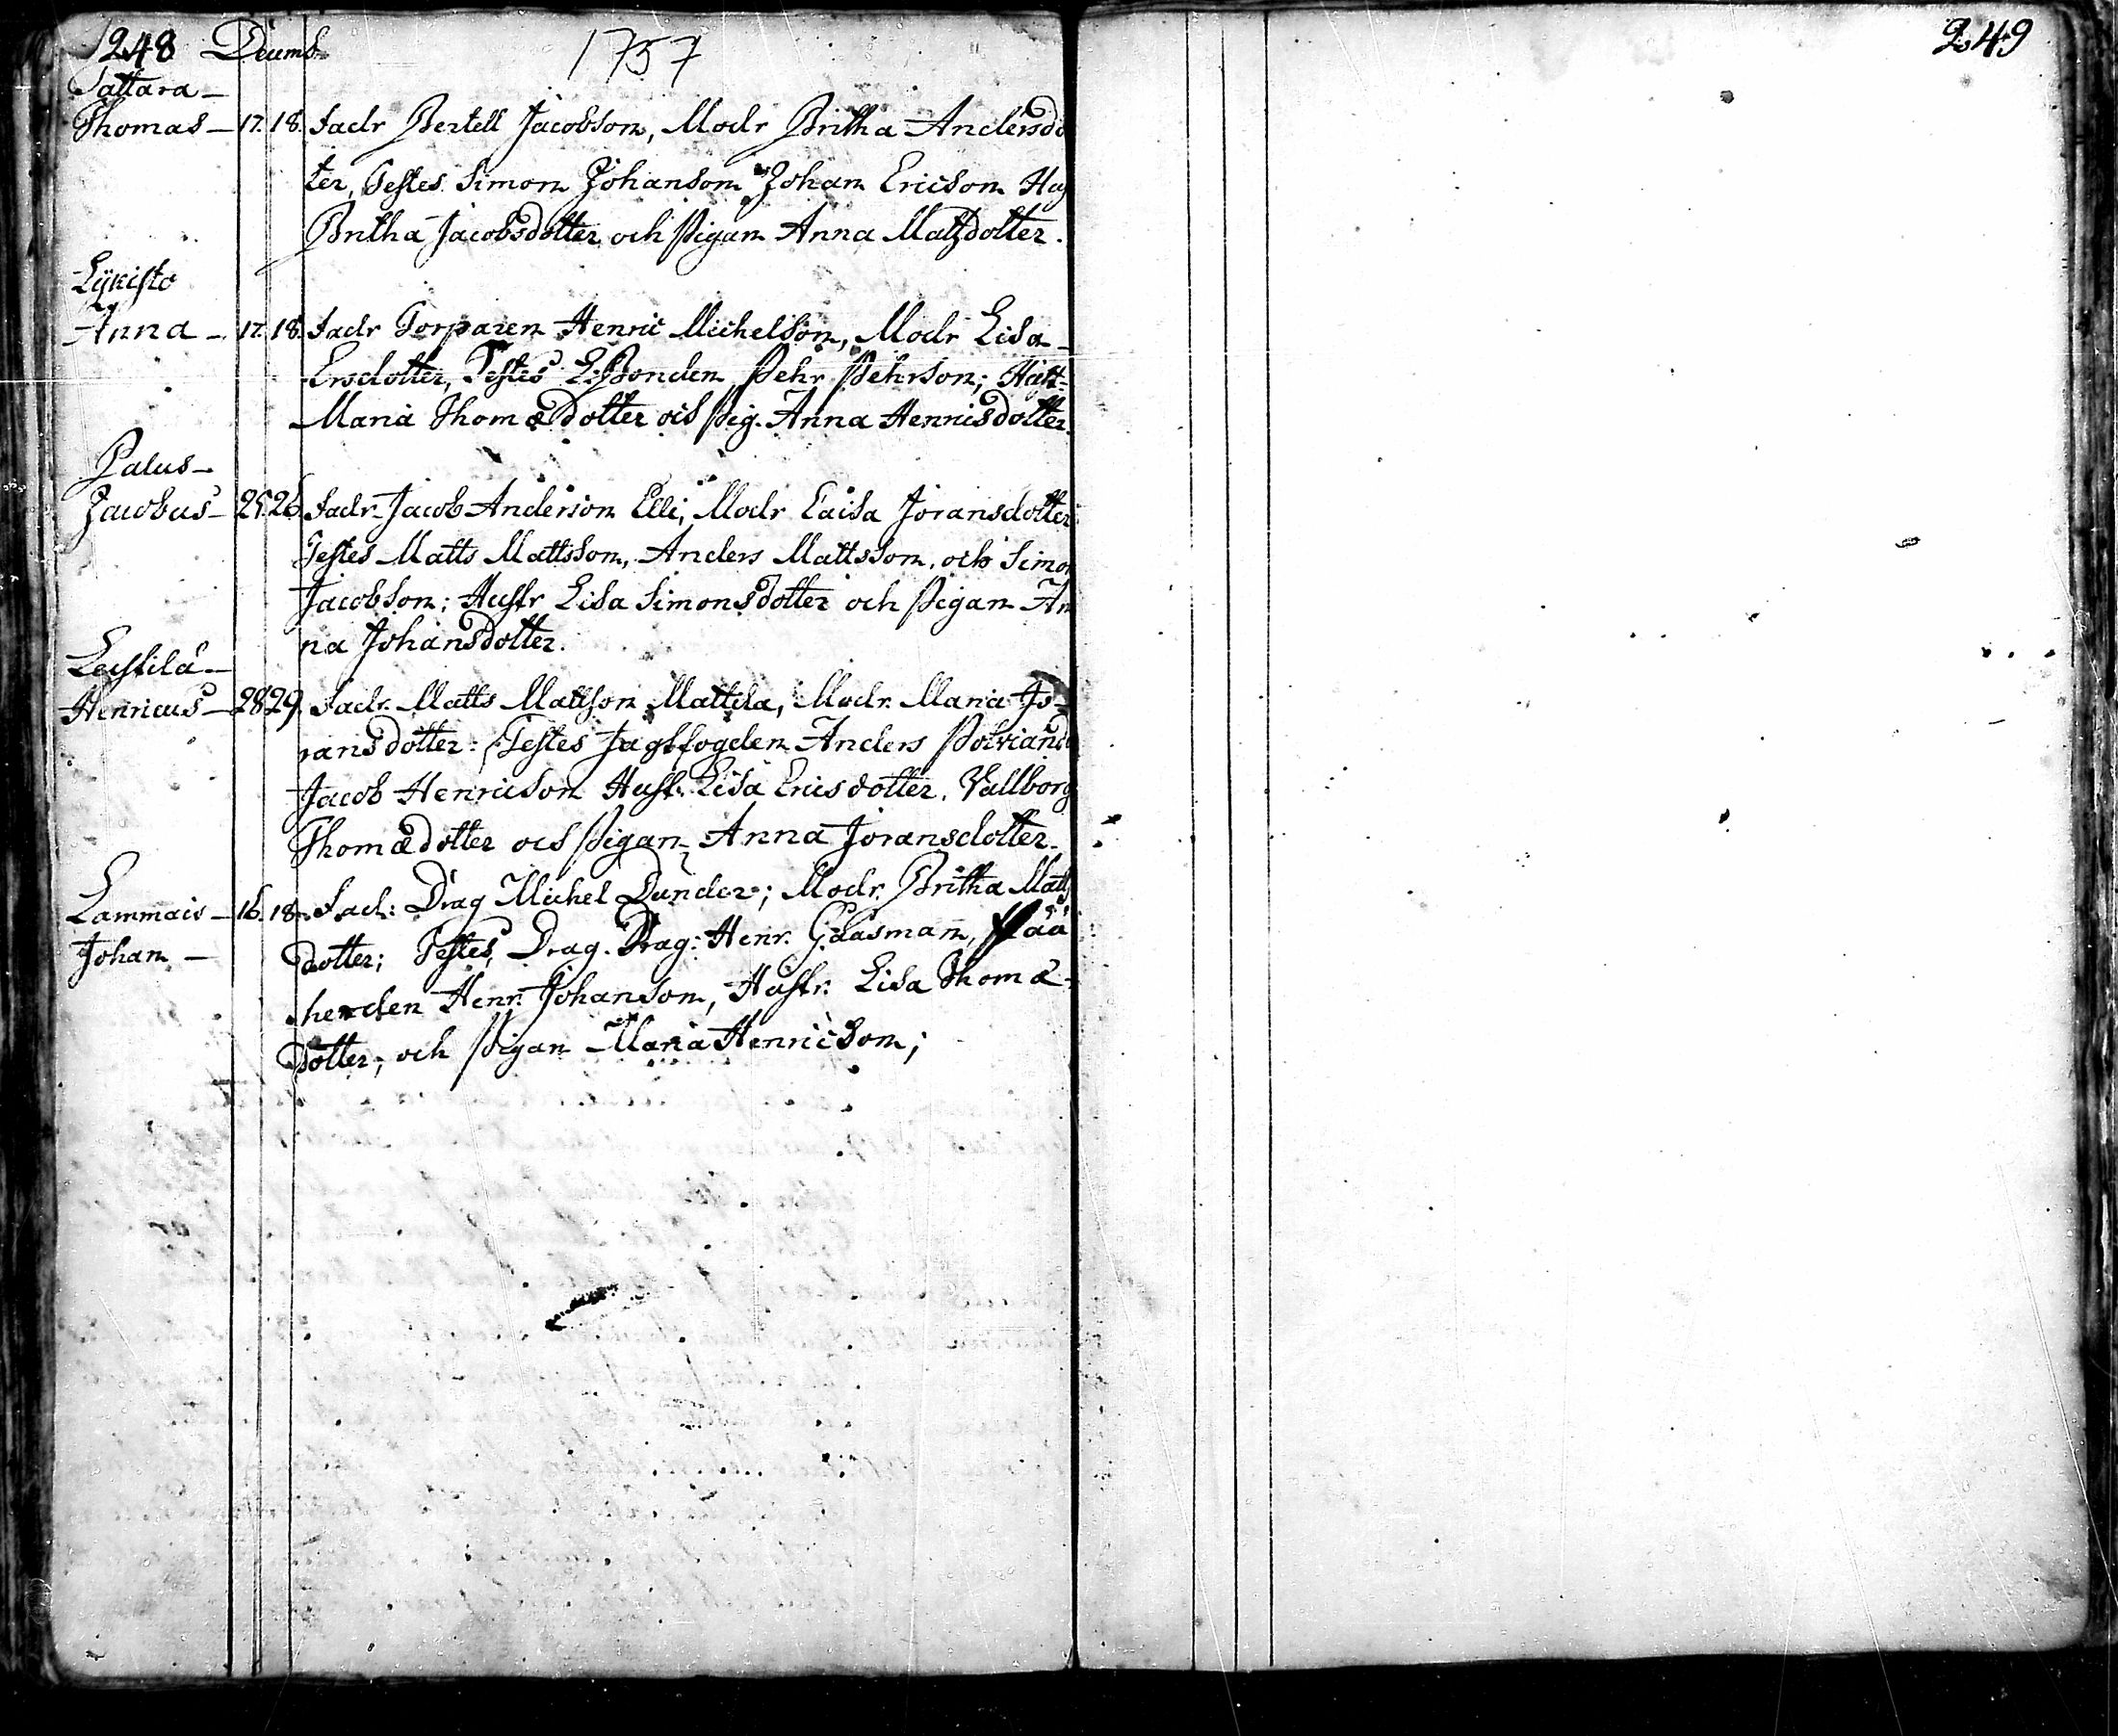 248 Decembr 1757
Sattara
Thomas – 17. 18. Fadr Bertell Jacobson, Modr Britha Andersdo
ter, Testes Simon Johanson Johan Ericson Hus
Britha Jacobsdotter och Pigan Anna Matzdotter.
Lÿkistö
Anna – 17. 18. Fadr Torparen Henric Michelson, Modr Lisa
Ersdotter, Testes Bonden Pehr Pehrson; Hust
Maria Thomædotter och Pig. Anna Henricsdotter.
Palus –
Jacobus – 25 26 Fadr Jacob Anderson Elli, Modr Caisa Joransdotter
Testes Matts Mattsson, Anders Mattsson, och Simon
Jacobson; Hustr Lisa Simonsdotter och Pigan An
na Johansdotter.
Lestilä –
Henricus – 28 29. Fadr. Matts Mattson Mattila, Modr. Maria Jo-
ransdotter: Testes Jagtfogden Anders Polviand
Jacob Henricson Hust. Lisa Ericsdotter. Vallborg
Thomædotter och Pigan Anna Joransdotter.
Lammais – 16. 18. Fad: Drag Michel Dunder; Modr. Britha Matts
Johan – dotter; Testes, Drag. Drag: Henr. Gåasman,
henden Henr. Johanson, Hustr. Lisa Thomæ-
dotter, och Pigan Maria Henricson;
249